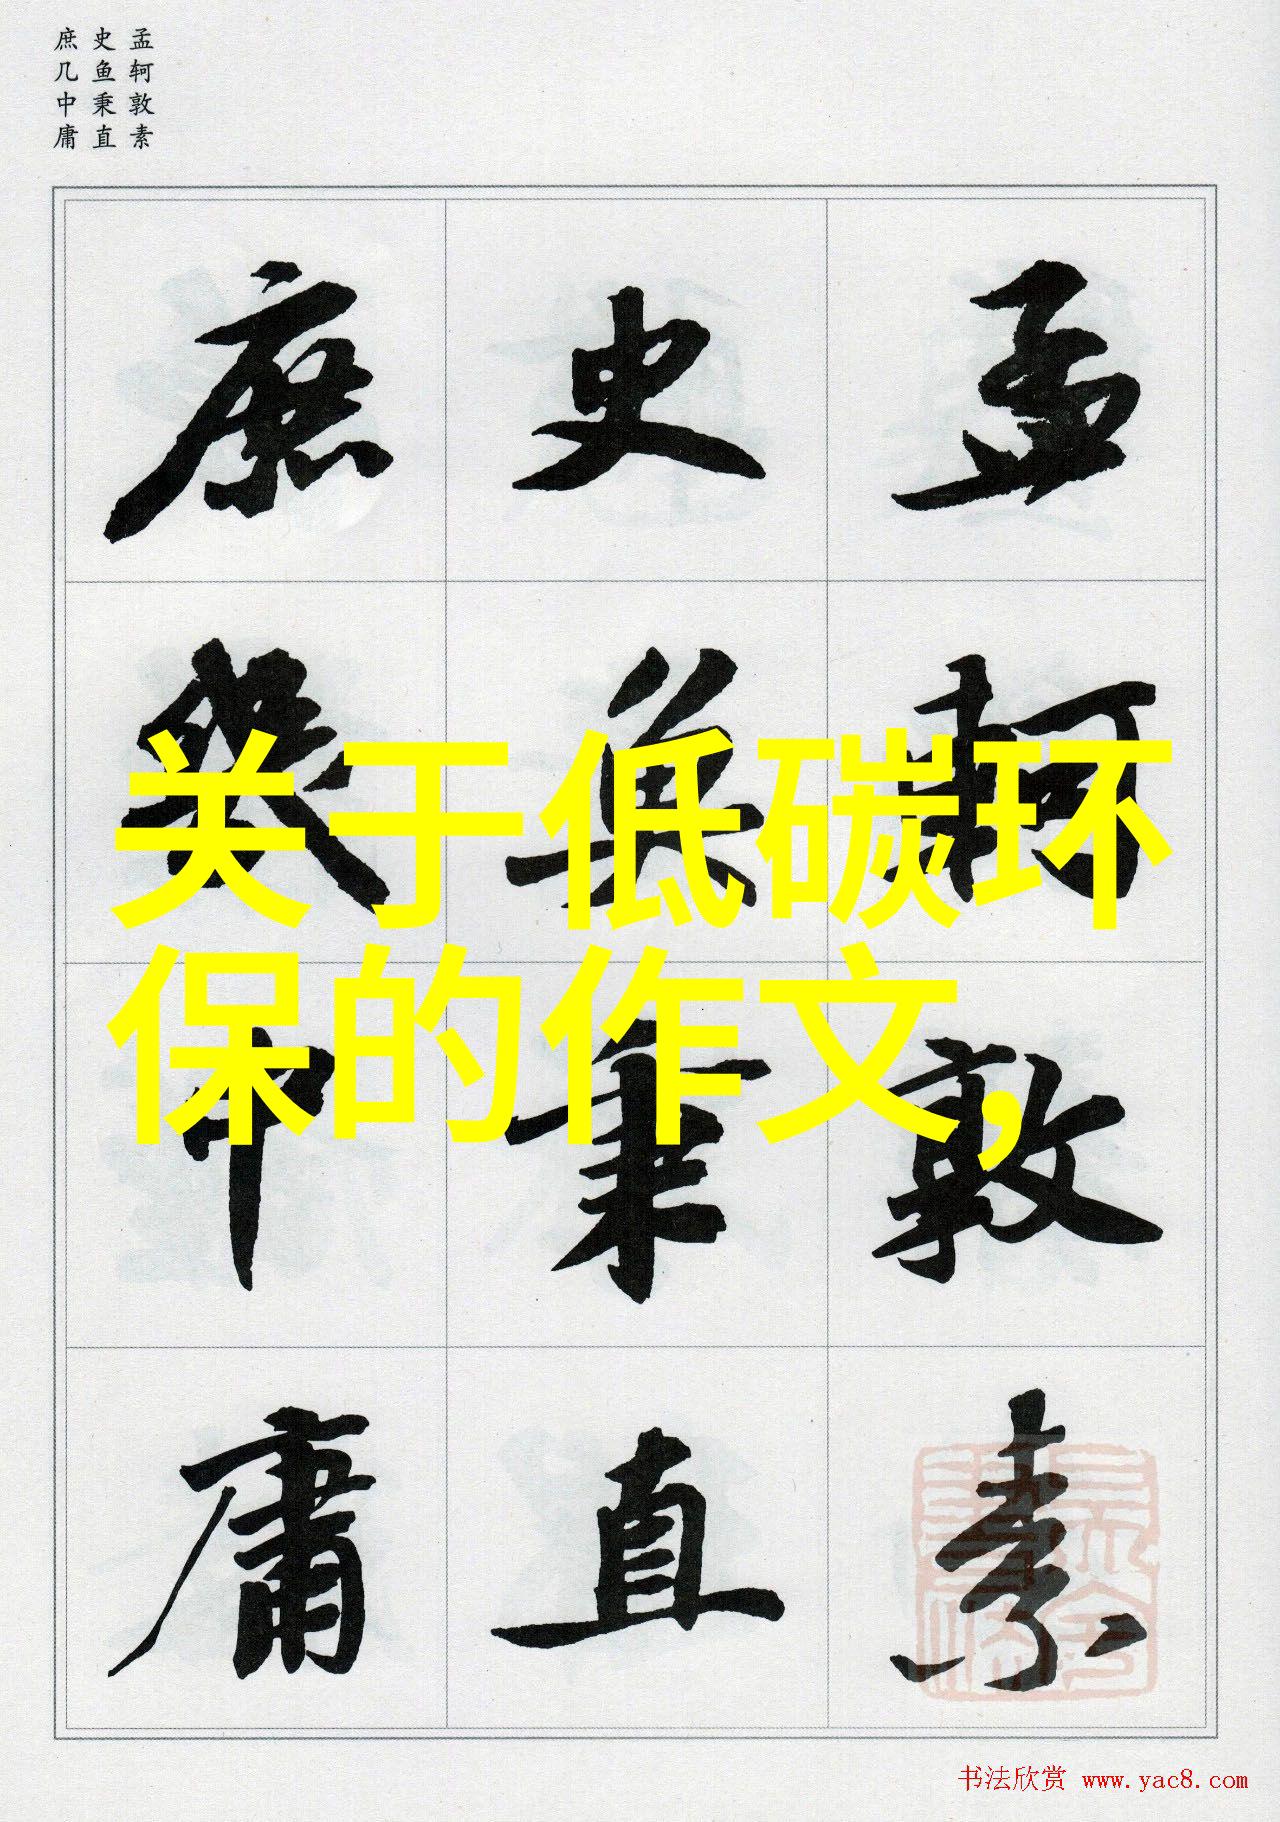 孟轲敦素
史鱼秉直
庶几中庸
孟轲敦素
史魚秉直
庶幾中庸
关于低碳环
保的作文,
书法欣赏 www.yac8.com